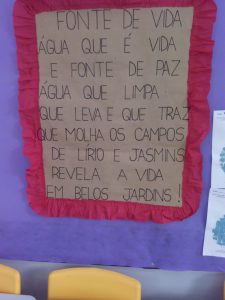 FONTE DE VIDA
ÁGUA QUE É VIDA
E FONTE DE PAZ
ÁGUA QUE LIMPA
QUE LEVA E QUE TRAZ
QUE MOLHA OS CAMPOS
DE LÍRIO E JASMINS
REVELA A VIDA
EM BELOS JARDINS!